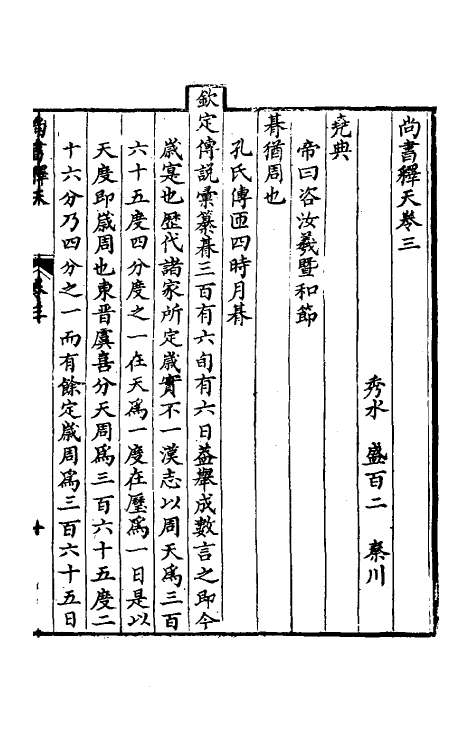 尚書釋天卷三
秀水　盛百二　秦川
堯典
帝曰咨汝羲暨和節
朞猶周也
孔氏傳匝四時月朞
欽定傳說彙纂朞三百有六旬有六日葢舉成數言之即今
歲寔也歷代諸家所定歲實不一漢志以周天爲三百
六十五度四分度之一在天爲一度在歷爲一日是以
天度即歲周也東晋虞喜分天周爲三百六十五度二
十六分乃四分之一而有餘定歲周爲三百六十五日